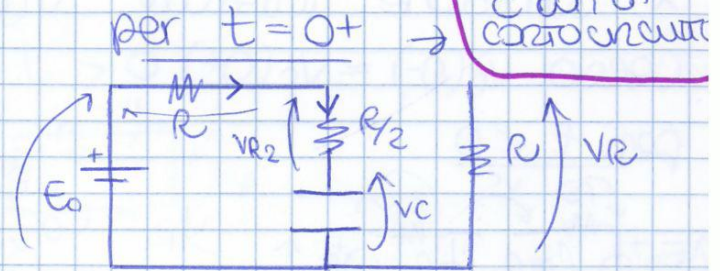 per t = 0+ →
cortocircuito
+
R
VR2
R/2
R
VR
E₀
VC